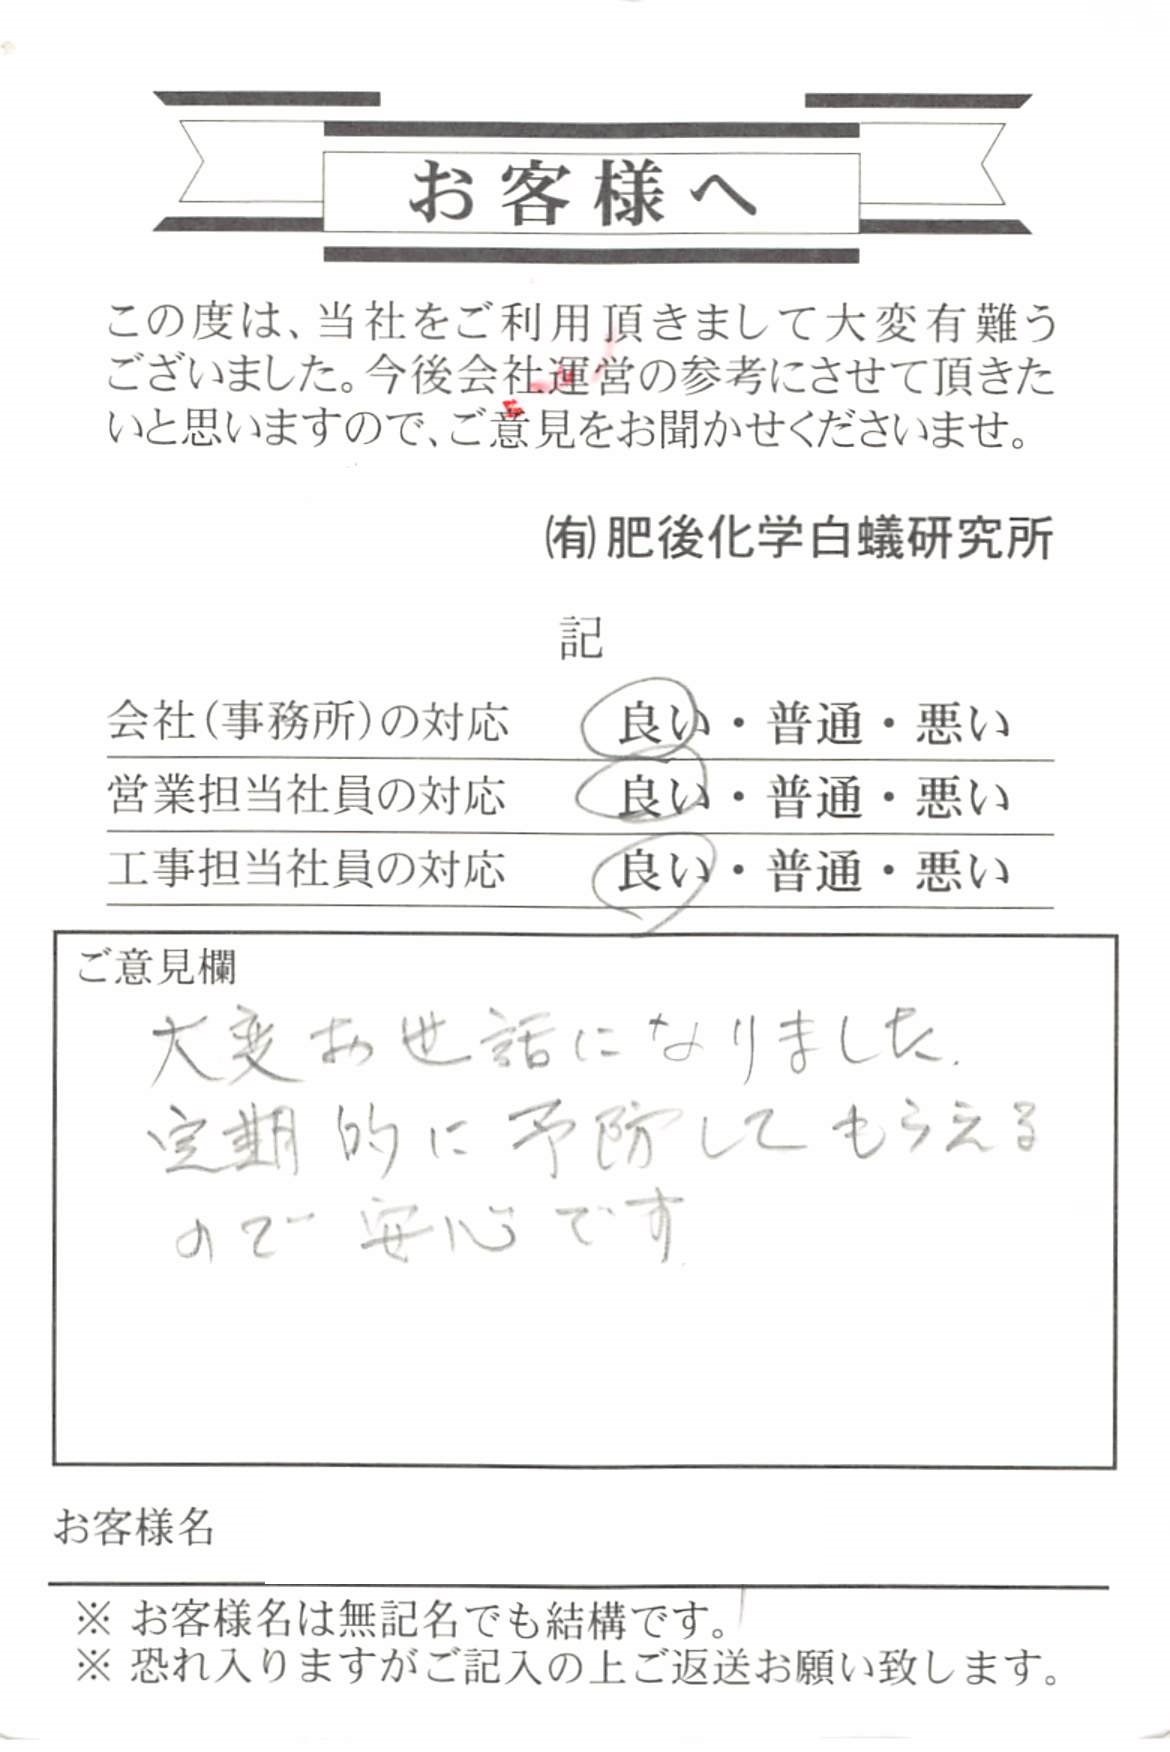 お客様へ
この度は、当社をご利用頂きまして大変有難う
ございました。今後会社運営の参考にさせて頂きた
いと思いますので、ご意見をお聞かせくださいませ。
㈲肥後化学白蟻研究所
記
会社(事務所)の対応 良い・普通・悪い
営業担当社員の対応 良い・普通・悪い
工事担当社員の対応 良い・普通・悪い
ご意見欄
大変お世話になりました.
定期的に予防してもらえる
ので安心です
お客様名
※ お客様名は無記名でも結構です。
※ 恐れ入りますがご記入の上ご返送お願い致します。